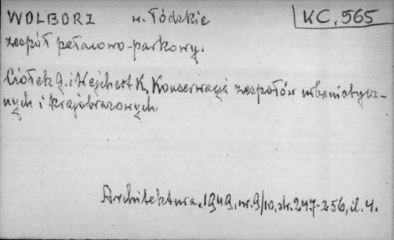 WOLBORZ w. Łódzkie KC, 565
zespół pałacowo-parkowy.
Ciołek G. i Wejchert K, Konserwacja zespołów urbanistycz-
nych i krajobrazowych
Architektura, 1949, nr. 9/10, str. 247-256, il. 4.